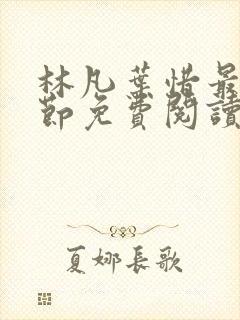 林凡葉惜最
節免費閱讀
夏娜長歌